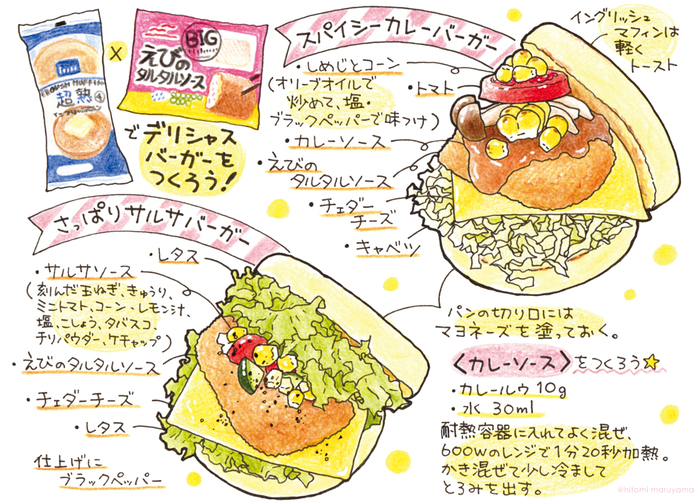 超熟
④
×
BIG
えびの
タルタルソース
で デリシャス
バーガーを
つくろう!
スパイシーカレーバーガー
イングリッシュ
マフィンは
軽く
トースト
・しめじとコーン
(オリーブオイルで
炒めて、塩・
ブラックペッパーで味つけ)
・トマト
・カレーソース
・えびの
タルタルソース
・チェダー
チーズ
・キャベツ
さっぱりサルサバーガー
・レタス
・サルサソース
(刻んだ玉ねぎ、きゅうり、
ミニトマト、コーン・レモン汁、
塩、こしょう、タバスコ、
チリパウダー、ケチャップ)
・えびのタルタルソース
・チェダーチーズ
・レタス
仕上げに
ブラックペッパー
パンの切り口には
マヨネーズを塗っておく。
〈カレーソース〉をつくろう☆
・カレールウ 10g
・水 30ml
耐熱容器に入れてよく混ぜ、
600wのレンジで1分20秒加熱。
かき混ぜて少し冷まして
とろみを出す。
@hitomi maruyama